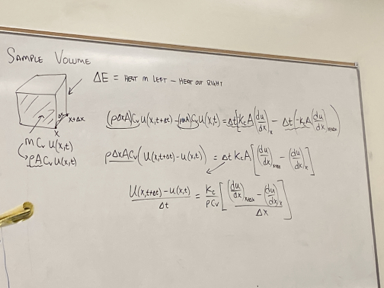 SAMPLE VOLUME
ΔE = HEAT IN LEFT - HEAT OUT RIGHT
x x+Δx
(ρΔxA)C_v u(x,t+Δt) - (ρΔxA)C_v u(x,t) = Δt[K_c A (du/dx)_x - Δt(-K_c A (du/dx)_{x+Δx})
m C_v u(x,t)
→ ρA C_v u(x,t)
ρΔxAC_v(u(x,t+Δt) - u(x,t)) = Δt K_c A [(du/dx)_{x+Δx} - (du/dx)_x]
U(x,t+Δt) - u(x,t) / Δt = K_c / ρC_v [(du/dx)_{x+Δx} - (du/dx)_x / Δx]